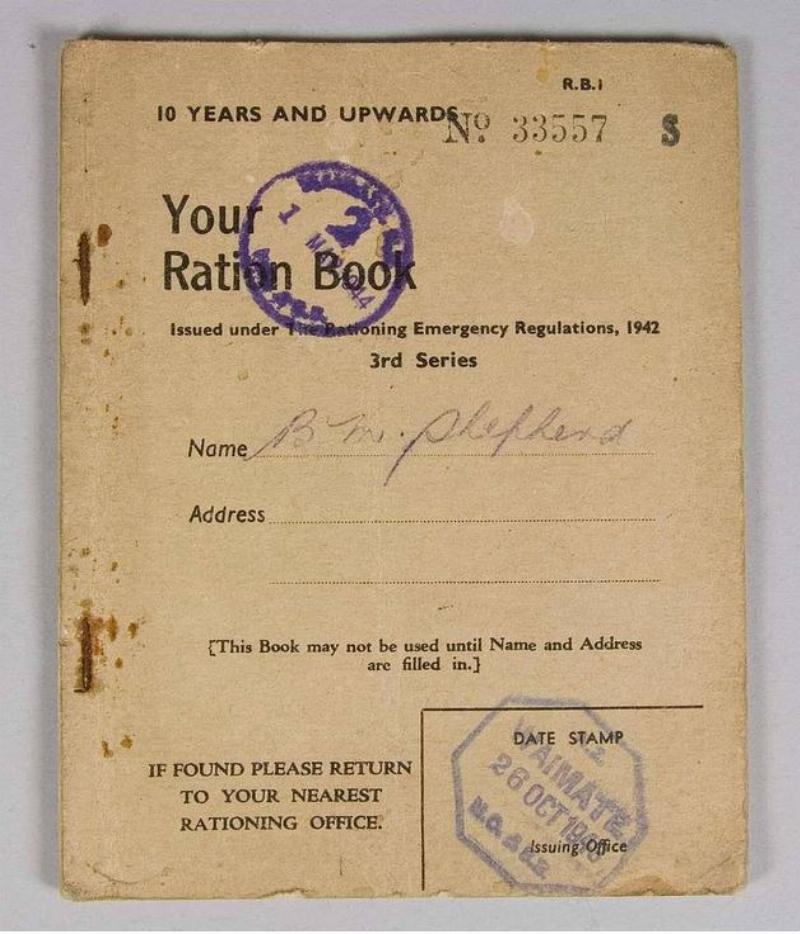 R.B.1
10 YEARS AND UPWARDS
No 33557 S
Your
Ration Book
2
1 MAY 1944
Issued under The Rationing Emergency Regulations, 1942
3rd Series
Name B M. Shepherd
Address
[This Book may not be used until Name and Address
are filled in.]
IF FOUND PLEASE RETURN
TO YOUR NEAREST
RATIONING OFFICE.
DATE STAMP
WAIMATE
26 OCT
Issuing Office